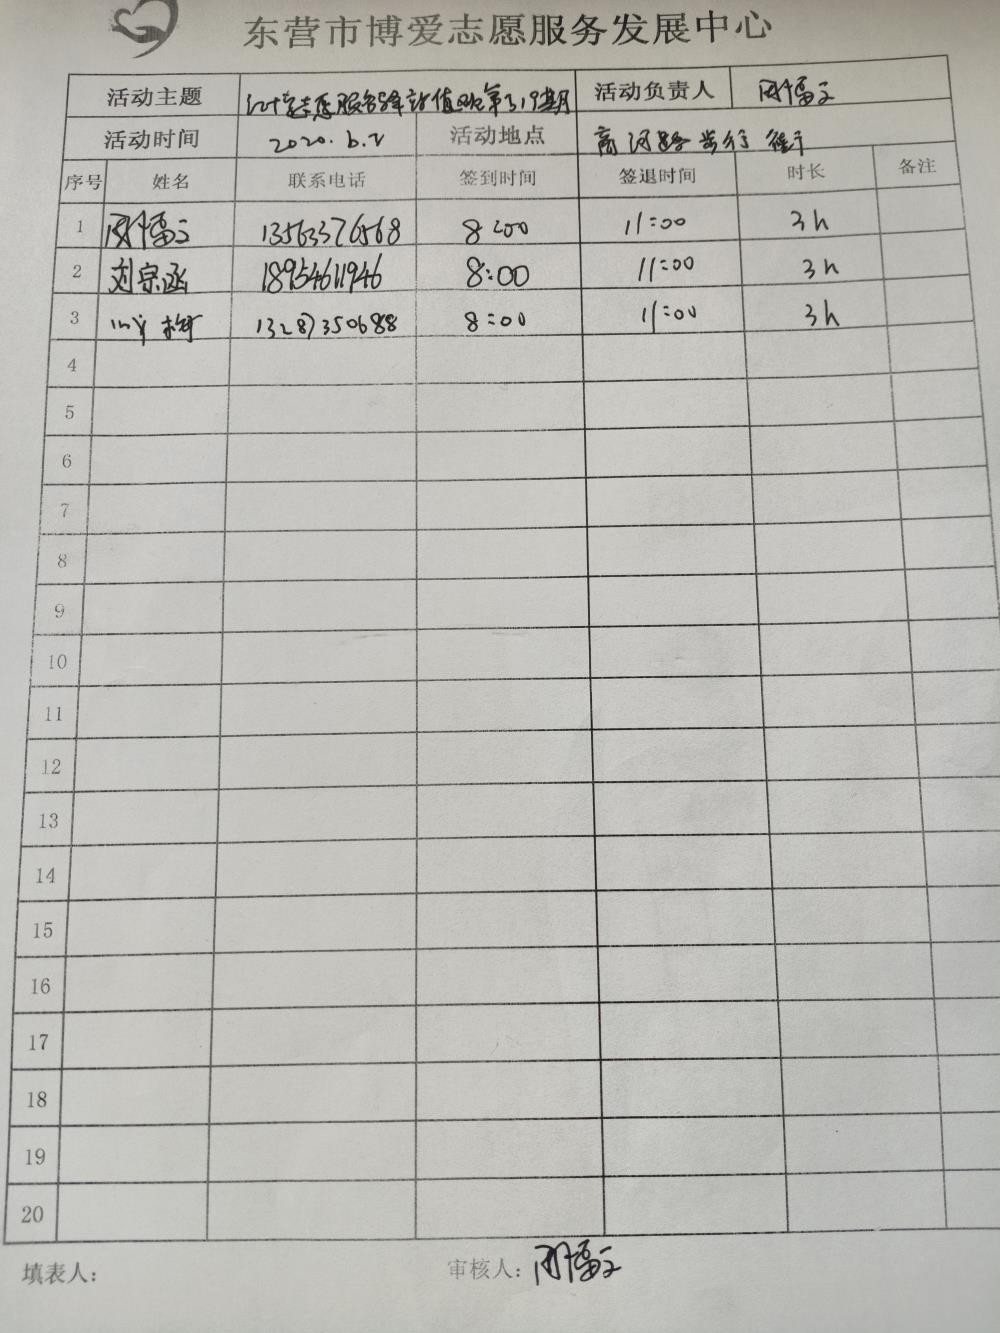 东营市博爱志愿服务发展中心
活动主题 红十字志愿服务驿站值班第319期 活动负责人
活动时间 2020.6.2 活动地点 商河路步行街
序号 姓名 联系电话 签到时间 签退时间 时长 备注
1 13563376568 8:00 11:00 3h
2 刘宗函 18954611946 8:00 11:00 3h
3 13287350688 8:00 11:00 3h
4
5
6
7
8
9
10
11
12
13
14
15
16
17
18
19
20
填表人： 审核人：